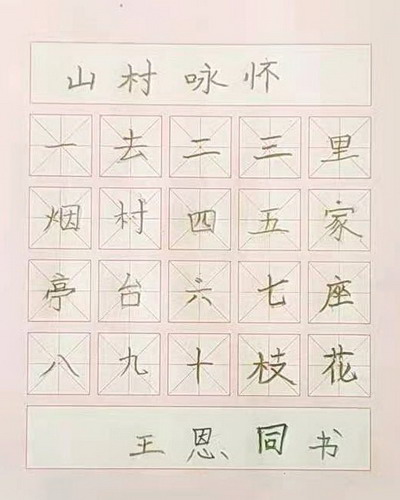 山村咏怀
一去二三里
烟村四五家
亭台六七座
八九十枝花
王恩同书